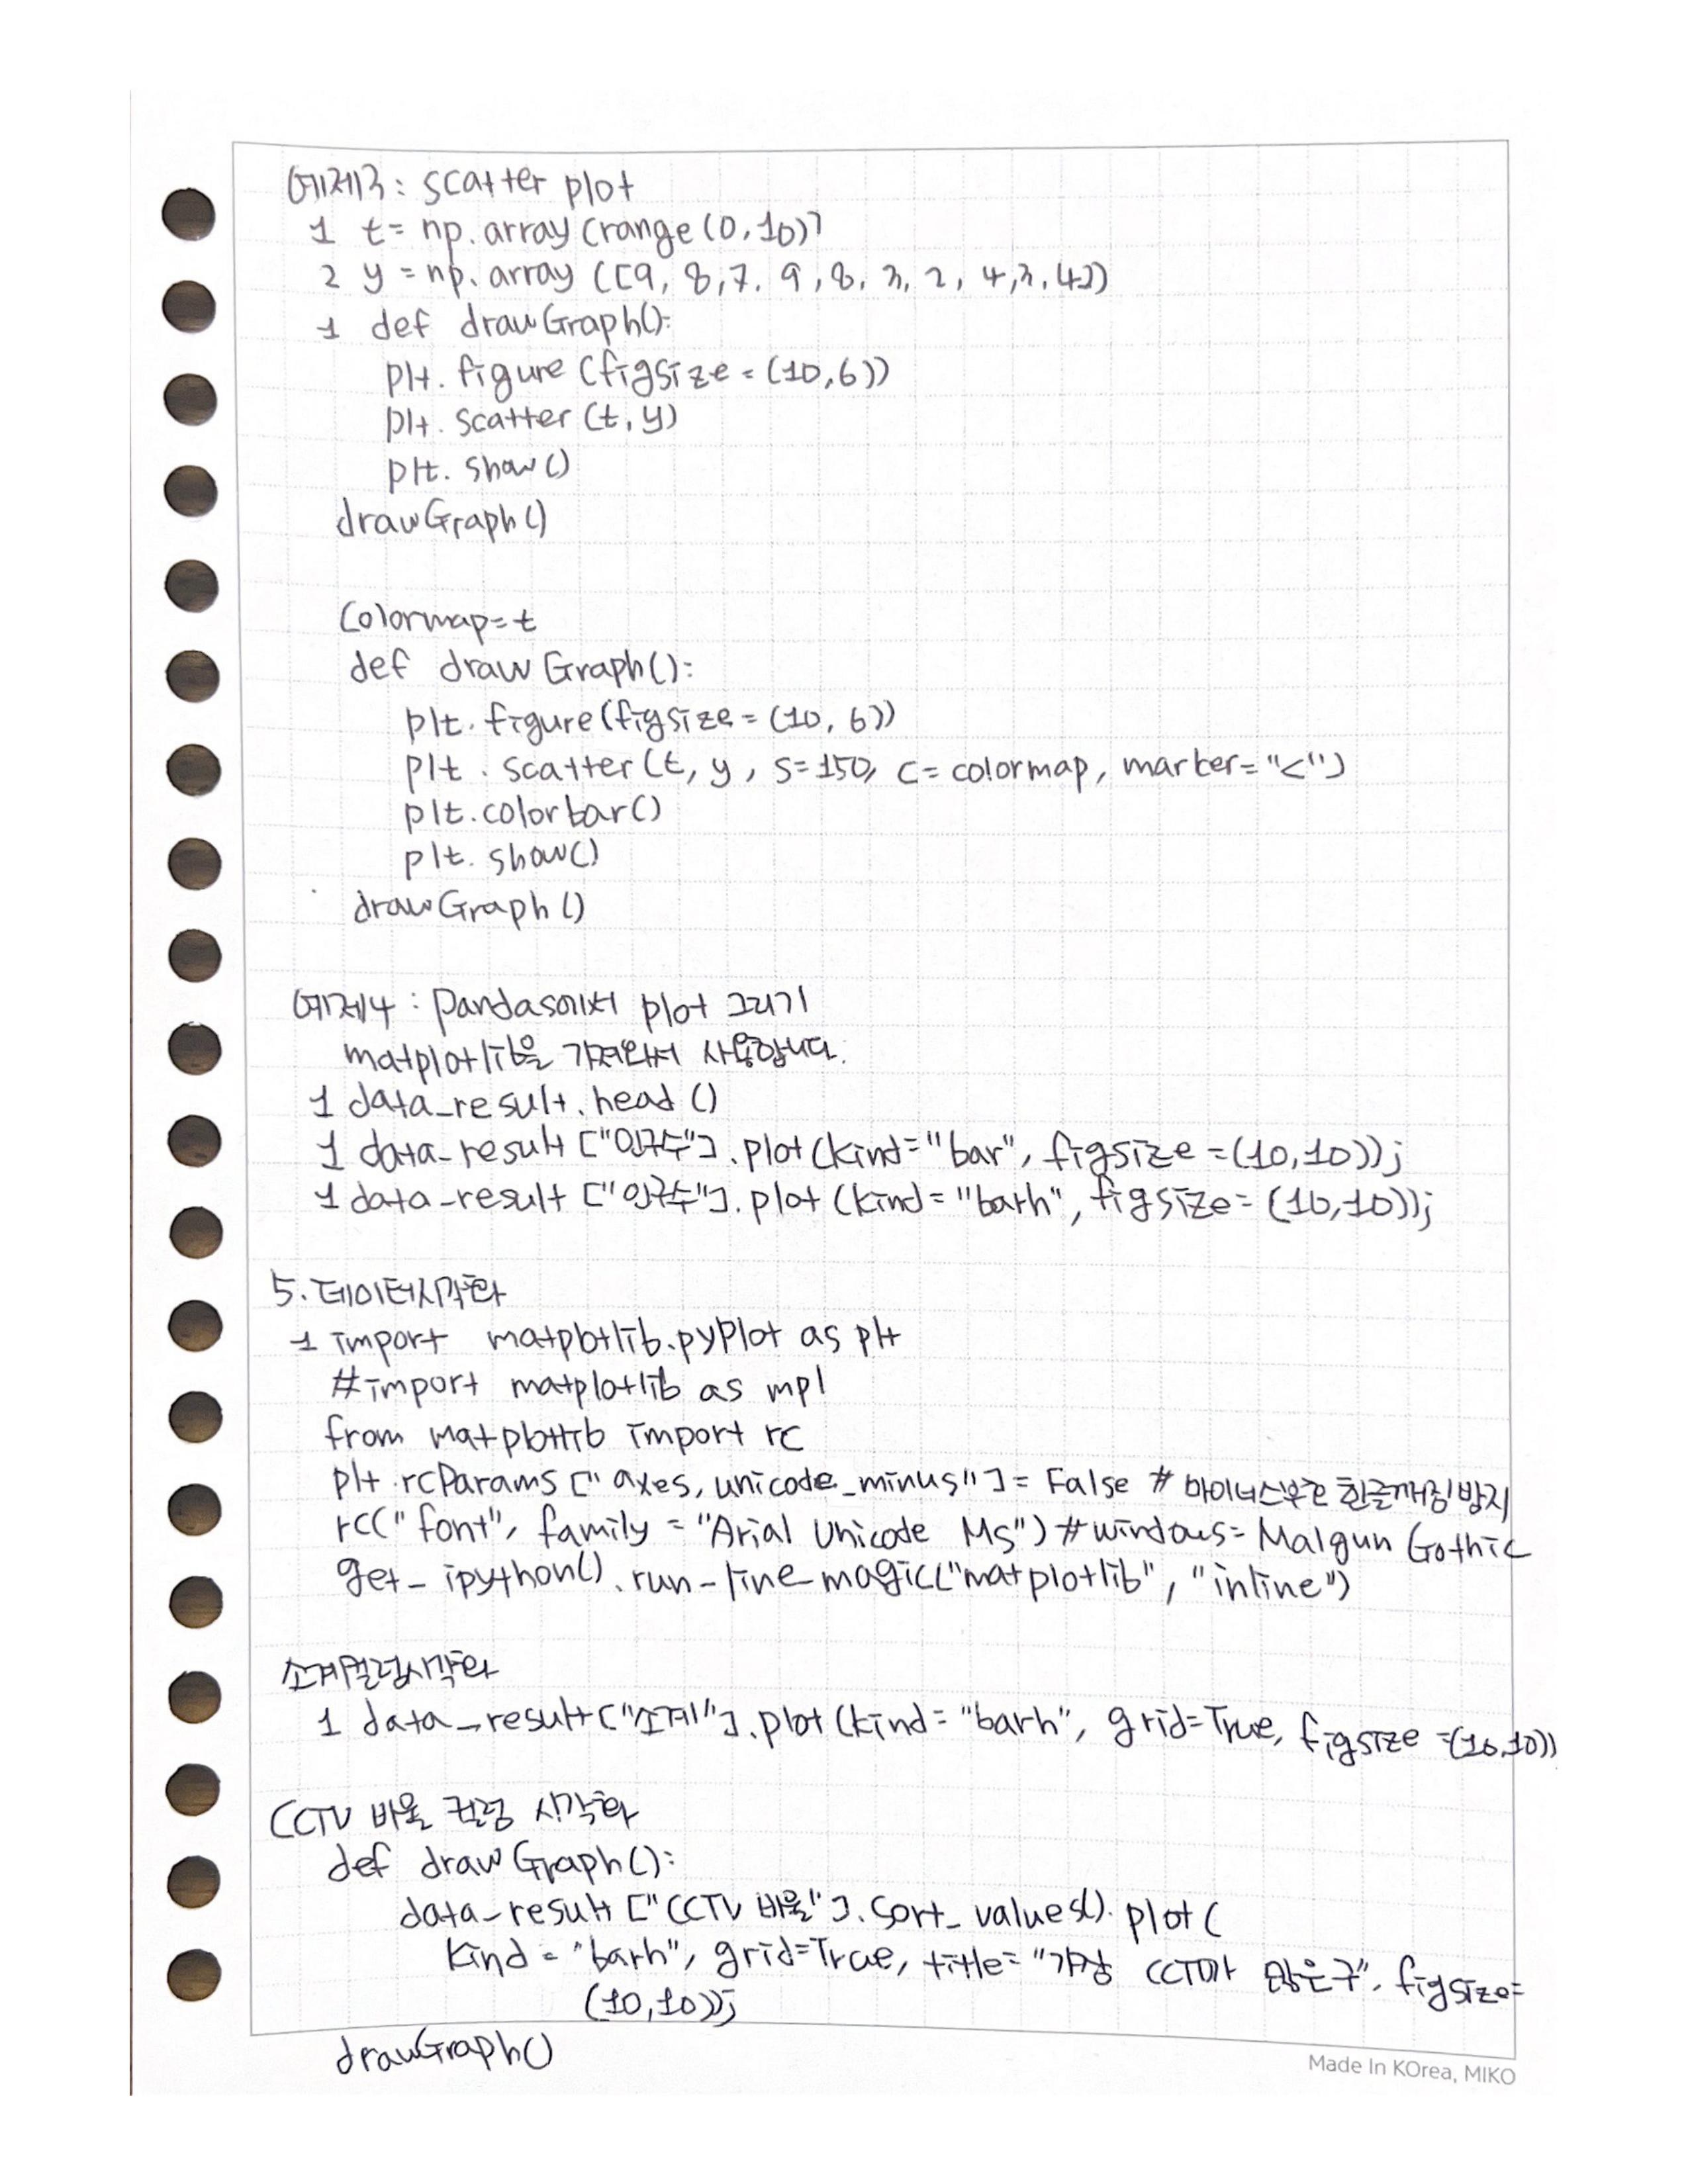 예제3: scatter plot
1 t= np.array(range(0,10))
2 y = np.array([9, 8, 7, 9, 8, 3, 2, 4, 3, 4])
1 def drawGraph():
plt.figure(figsize=(10,6))
plt.scatter(t,y)
plt.show()
drawGraph()
Colormap=t
def drawGraph():
plt.figure(figsize=(10, 6))
plt.scatter(t, y, s=150, c=colormap, marker="<")
plt.colorbar()
plt.show()
drawGraph()
예제4 : Pandas에서 plot 그리기
matplotlib을 가져와서 사용합니다.
1 data_result.head()
1 data_result["인구수"].plot(kind="bar", figsize=(10,10));
1 data_result["인구수"].plot(kind="barh", figsize=(10,10));
5. 데이터시각화
1 import matplotlib.pyplot as plt
#import matplotlib as mpl
from matplotlib import rc
plt.rcParams["axes, unicode_minus"]=False # 마이너스부호 한글깨짐방지
rc("font", family="Arial Unicode MS") #windows= Malgun Gothic
get_ipython().run_line_magic("matplotlib", "inline")
소계컬럼시각화
1 data_result["소계"].plot(kind="barh", grid=True, figsize=(10,10))
CCTV 비율 컬럼 시각화
def drawGraph():
data_result["CCTV 비율"].sort_values().plot(
kind="barh", grid=True, title="가장 CCTV가 많은구", figsize=
(10,10));
drawGraph()
Made In KOrea, MIKO